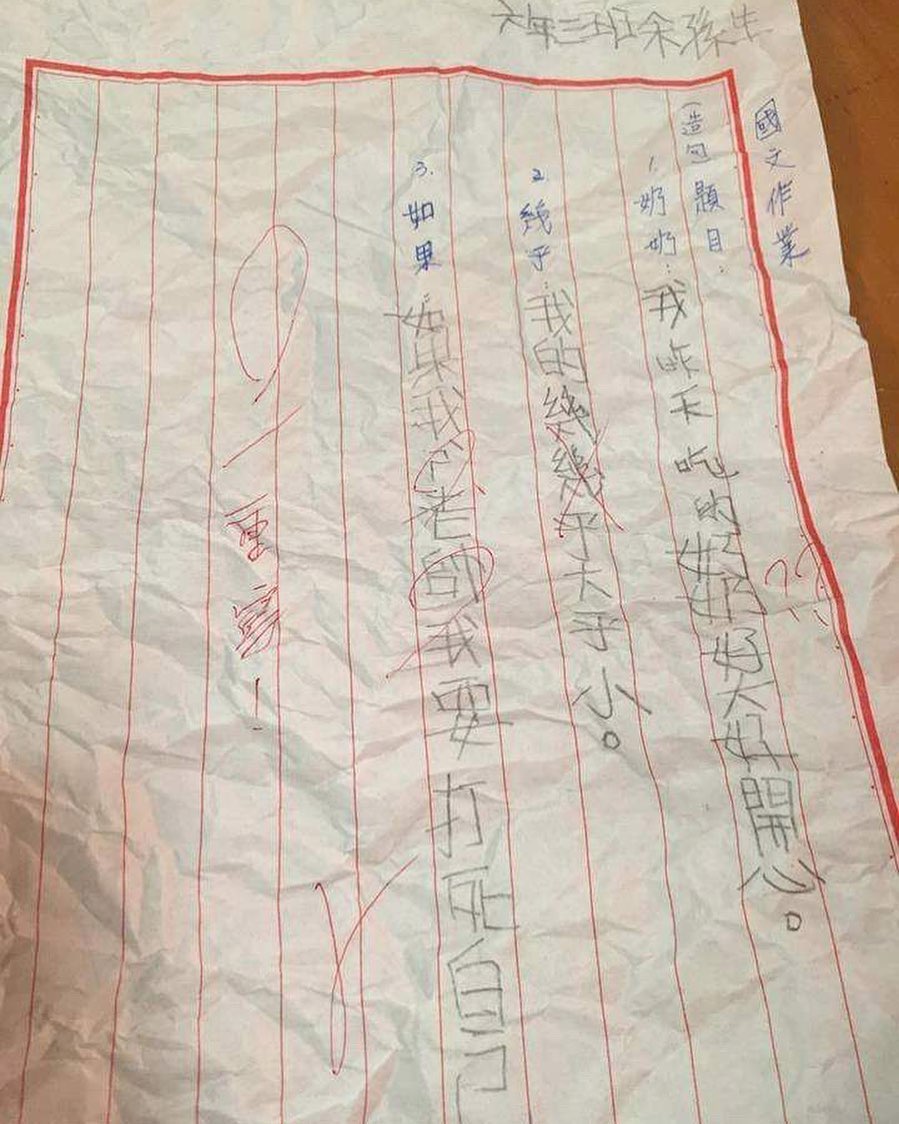 六年三班余孫生
國文作業
(造句 題目:
1. 奶奶:我昨天吃的奶奶好大好開心。
??
2. 幾乎:我的幾幾乎大乎小。
3. 如果:如果我老師我要打死自己
重寫!